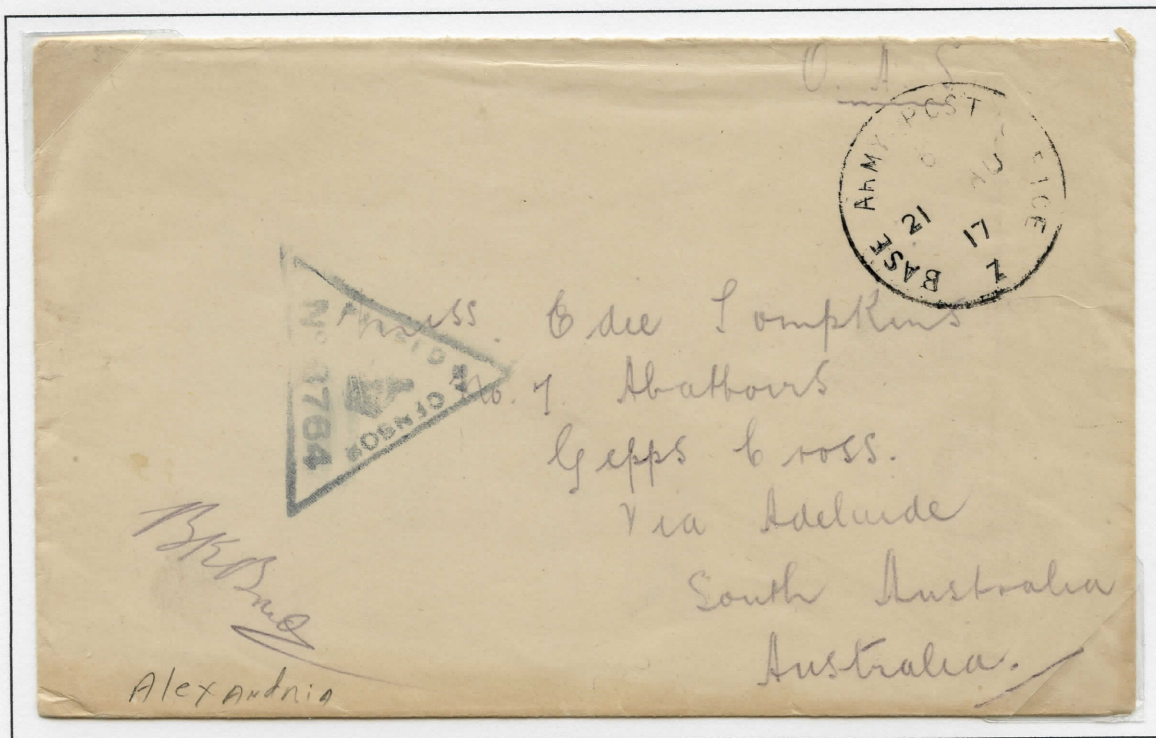 O. A. S
BASE ARMY POST OFFICE Z
AU
21 17
PASSED BY CENSOR
No 3784
Miss. Edie Tompkins
No. 7. Abattoirs
Gepps Cross.
Via Adelaide
South Australia
Australia.
Alexandria